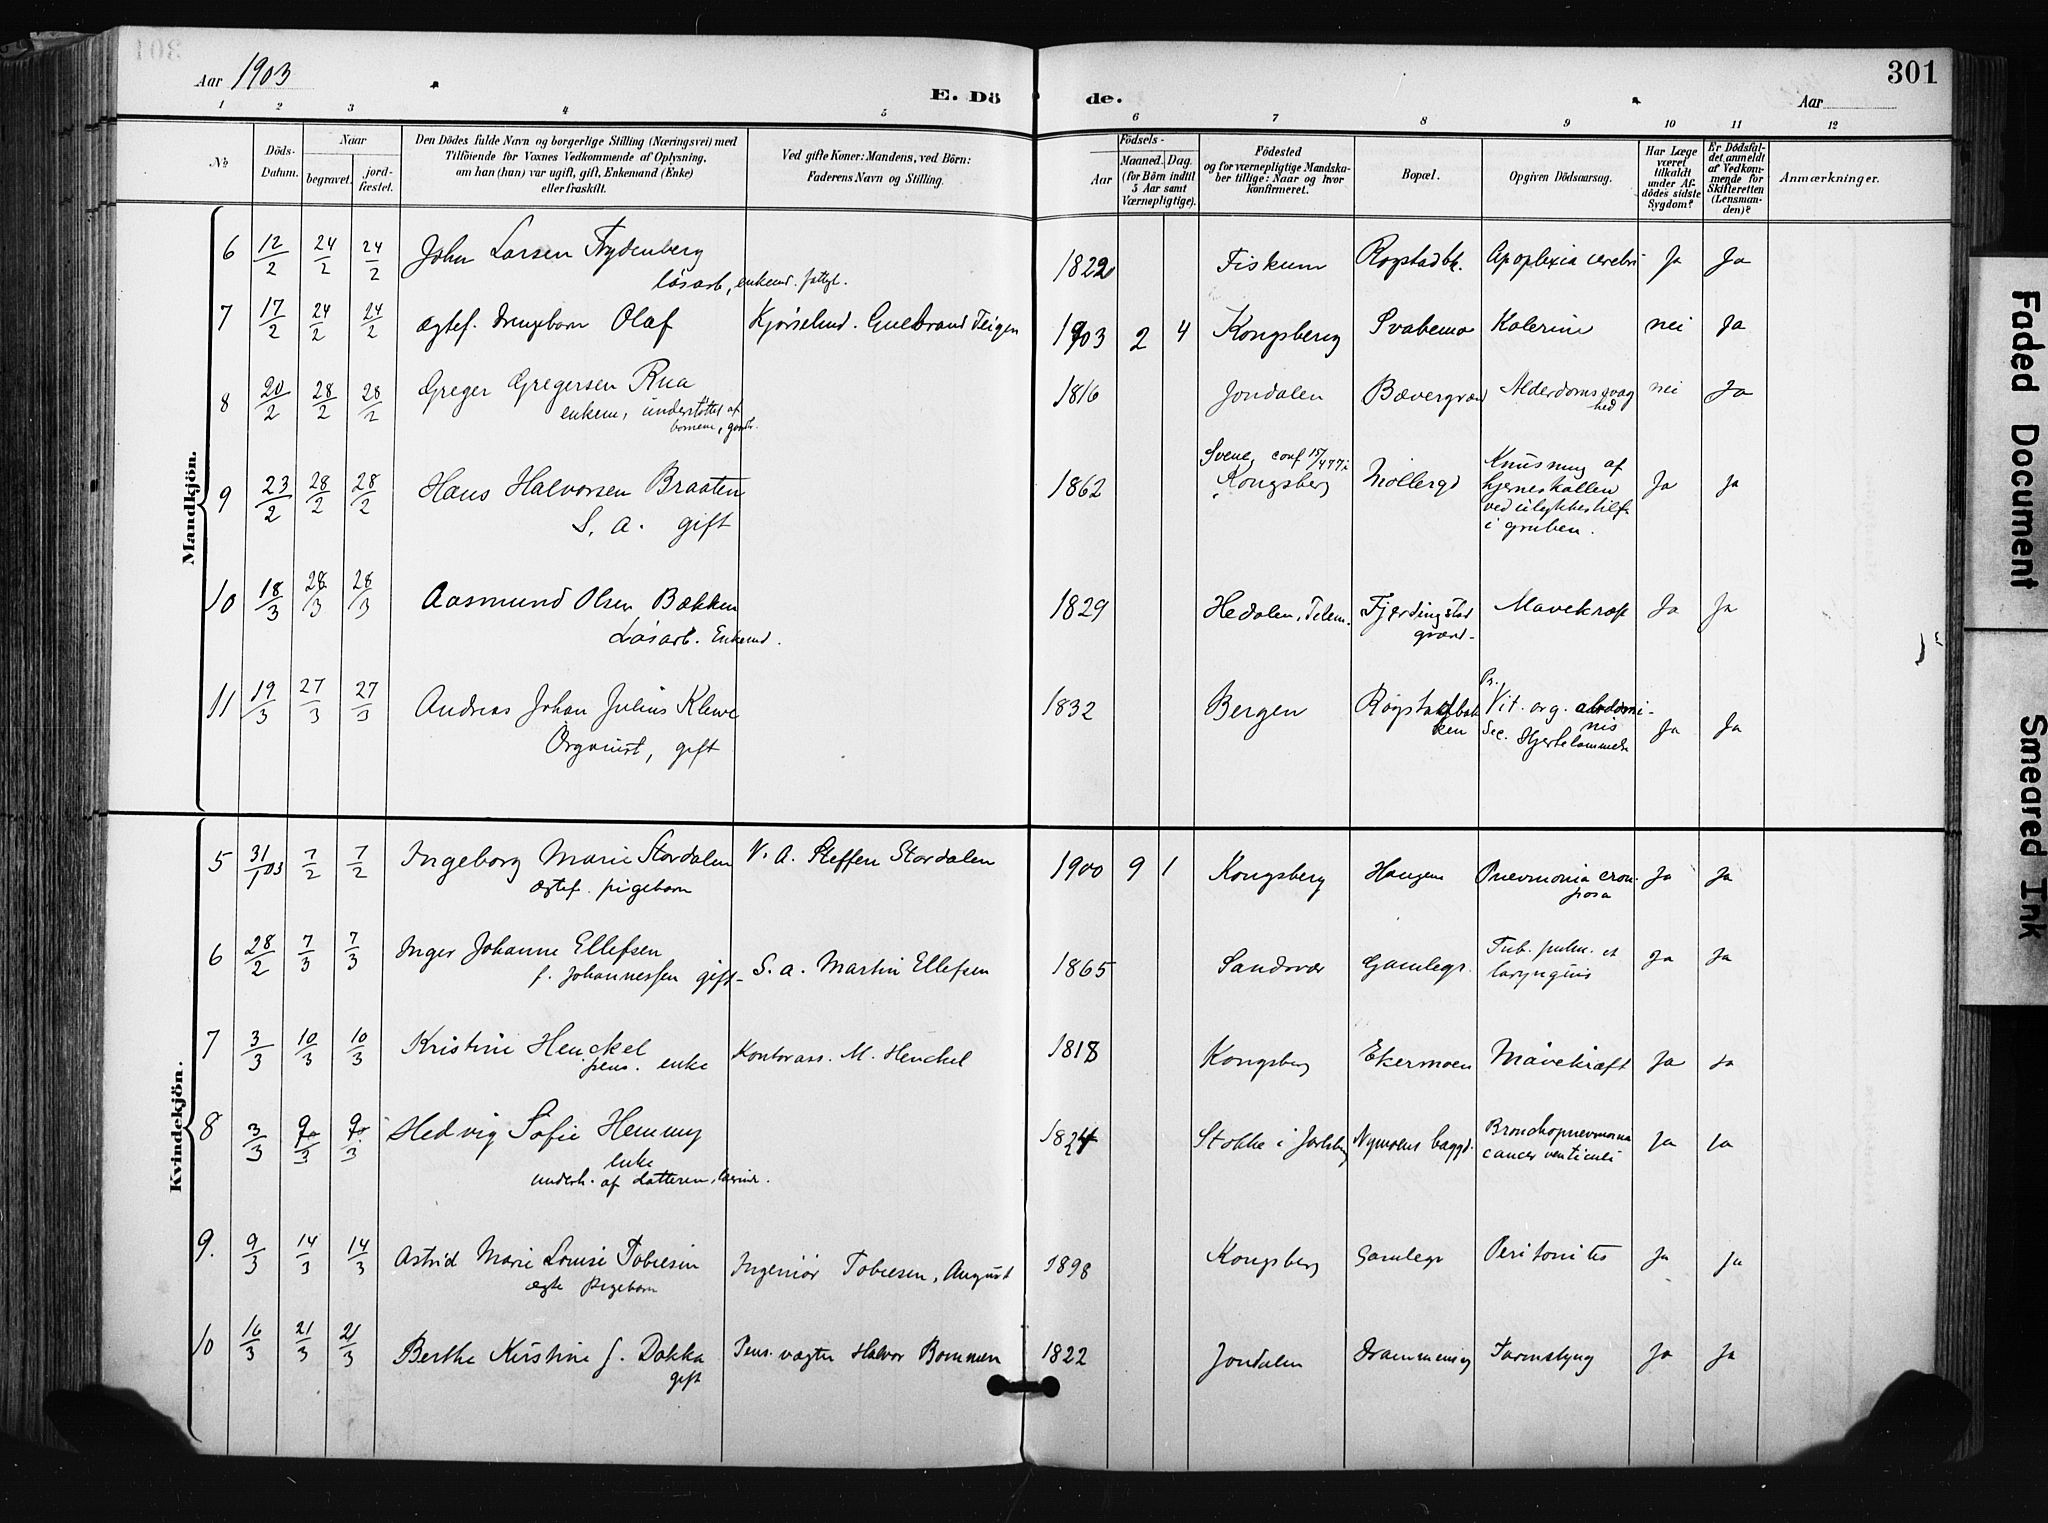 301
Aar 1903
E. Dö de.
Aar
1 2 3 4 5 6 7 8 9 10 11 12
No.
Döds-Datum.
Naar
begravet.
jord-fæstet.
Den Dödes fulde Navn og borgerlige Stilling (Næringsvei) med
Tilföiende for Voxnes Vedkommende af Oplysning,
om han (hun) var ugift, gift, Enkemand (Enke)
eller fraskilt.
Ved gifte Koner: Mandens, ved Börn:
Faderens Navn og Stilling.
Födsels-
Aar
Maaned. Dag.
(for Börn indtil
5 Aar samt
Værnepligtige).
Födested
og for værnepligtige Mandska-
ber tillige: Naar og hvor
konfirmeret.
Bopæl.
Opgiven Dödsaarsag.
Har Læge
været
tilkaldt
under Af-
dödes sidste
Sygdom?
Er Dödsfal-
det anmeldt
af Vedkom-
mende for
Skifteretten
(Lensman-
den)?
Anmærkninger.
Mandkjön.
6 12/2 24/2 24/2 John Larsen 1822 Fiskum Rogstadbk. Apoplexia cerebri Ja Ja
løsarb, enkemd.
7 17/2 24/2 24/2 Ægtef. Drengebarn Olaf Gulbrand Teigen 1903 2 4 Kongsberg Svabemo Kolerine nei Ja
8 20/2 28/2 28/2 Greger Gregersen Rua 1816 Jondalen Alderdomssvag nei Ja
hed
enkem, understøttet af
9 23/2 28/2 28/2 Hans Halvorsen Braaten 1862 Svene, conf 15/4 77 i
Kongsberg Møllergd Knusning af
hjerneskallen
ved ulykkestilf.
i gruben. Ja Ja
S. a. gift
10 18/3 28/3 28/3 Aasmund Olsen Bækken 1829 Hedalen, Telem. Fjerdingstad
grænd- Mavekræft Ja Ja
Løsarb. Enkemd.
11 19/3 27/3 27/3 Andreas Johan Julius Klewe 1832 Bergen Rogstadbak
ken Pr.
Vit. org. abdomi-
nis
Sec. Hjertelammelse Ja Ja
Organist, gift
Kvindekjön.
5 31/1 03 7/2 7/2 Ingeborg Marie Stordalen V. A. Steffen Stordalen 1900 9 1 Kongsberg Haugen Pnevmonia crou-
posa Ja Ja
ægtef. pigebarn
6 28/2 7/3 7/3 Inger Johanne Ellefsen S. a. Martin Ellefsen 1865 Sandsvær Gamlegr. Tub. pulm. et
laryngius Ja Ja
f. Johannessen gift
7 3/3 10/3 10/3 Kristine Henckel Kontorass. M. Henckel 1818 Kongsberg Ekermoen Mavekræft Ja Ja
pens. enke
8 3/3 Hedvig Sofie Hemmy 1824 Stokke i Jarlsberg Nymoens baggd. Bronchopnevmonia
cancer venticuli Ja Ja
enke
underh. af datteren, lærerinde.
9. 9/3 14/3 14/3 Astrid Marie Louise Tobiesen Ingeniør Tobiesen, August 1898 Kongsberg Gamlegr Peritonites Ja Ja
ægte Pigebarn
10 16/3 21/3 21/3 Berthe Kirstine f. Dokka Pens. vægter Halvor Bommen 1822 Jondalen Drammensvg Tarmslyng Ja Ja
gift
Faded Document
Smeared Ink